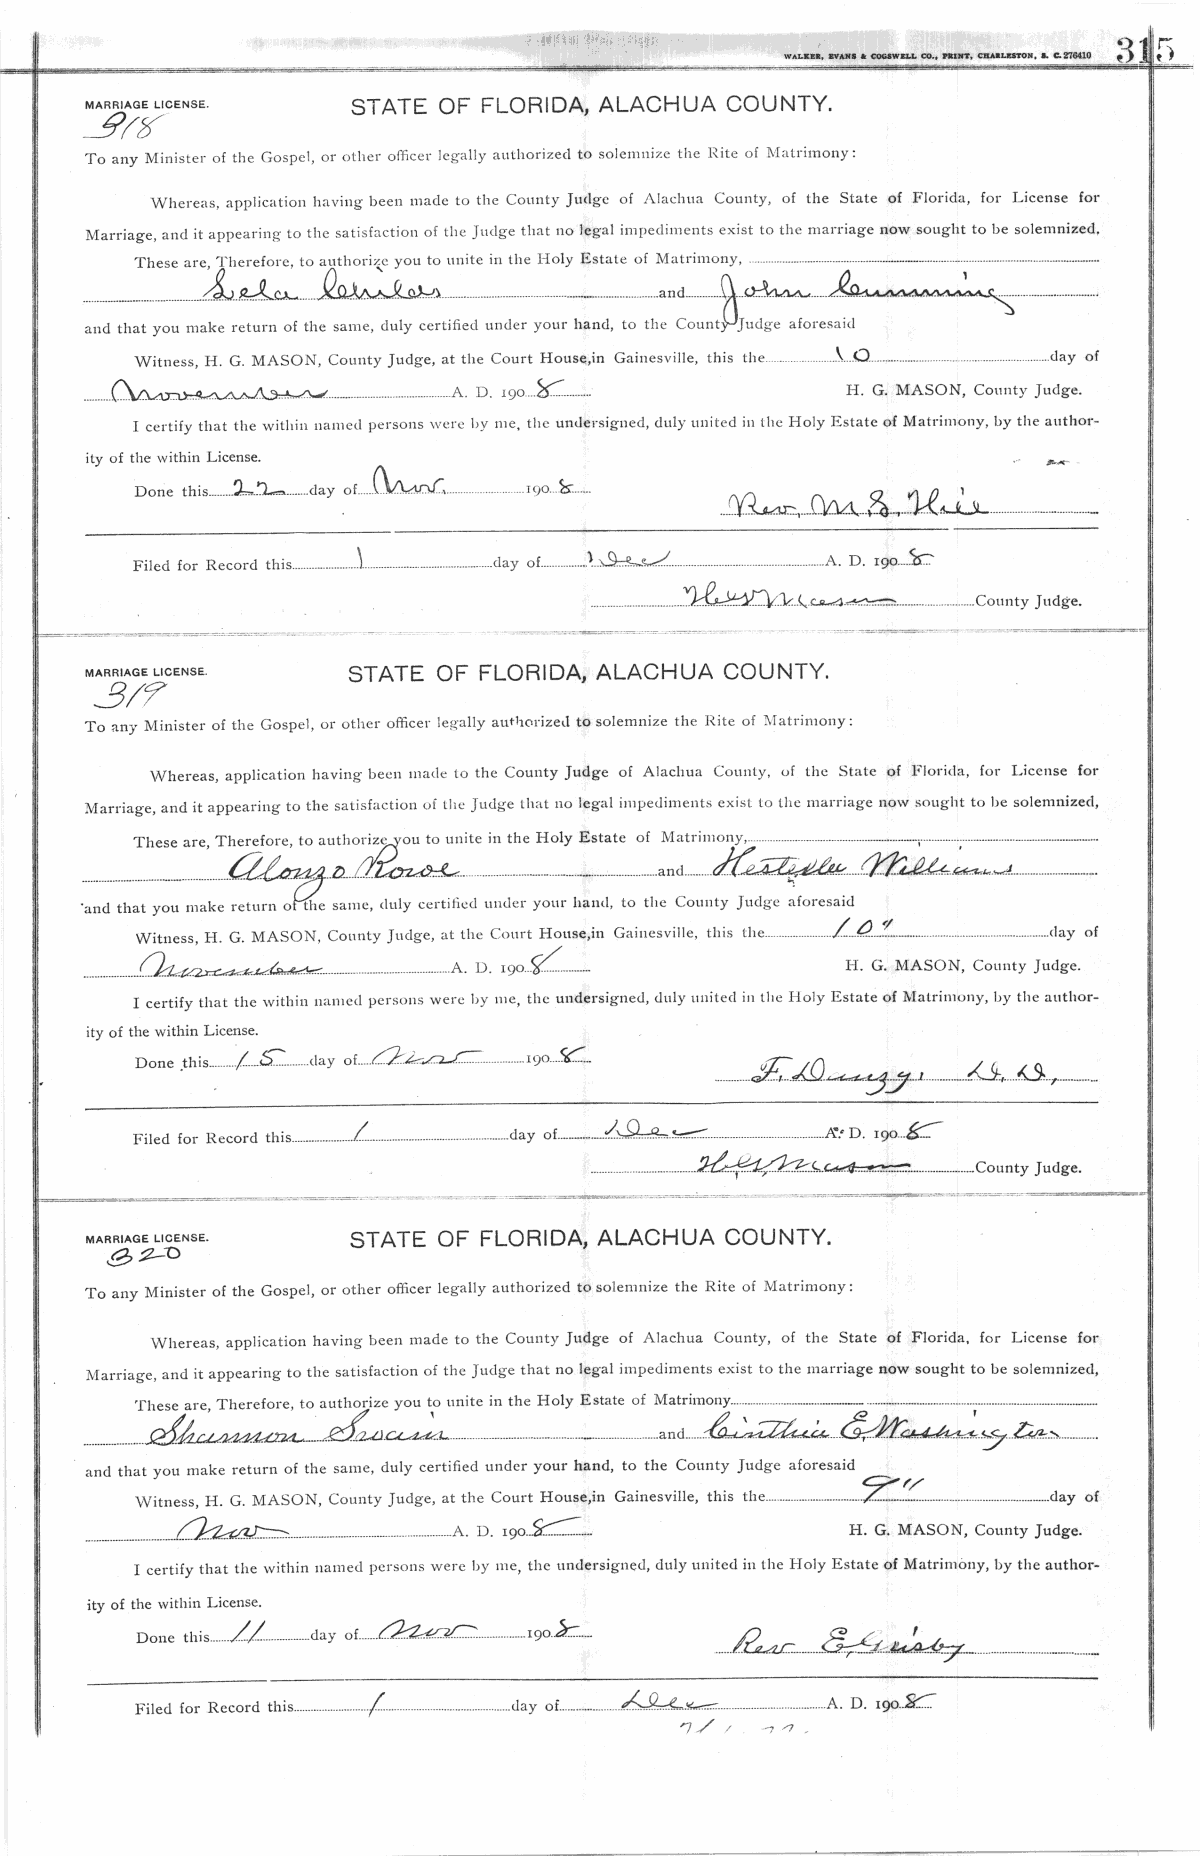 WALKER, EVANS & COGSWELL CO., PRINT, CHARLESTON, S. C. 276410 315
MARRIAGE LICENSE. STATE OF FLORIDA, ALACHUA COUNTY.
318
To any Minister of the Gospel, or other officer legally authorized to solemnize the Rite of Matrimony:
Whereas, application having been made to the County Judge of Alachua County, of the State of Florida, for License for
Marriage, and it appearing to the satisfaction of the Judge that no legal impediments exist to the marriage now sought to be solemnized,
These are, Therefore, to authorize you to unite in the Holy Estate of Matrimony,
Lela Childs and John Cumming
and that you make return of the same, duly certified under your hand, to the County Judge aforesaid
Witness, H. G. MASON, County Judge, at the Court House, in Gainesville, this the 10 day of
November A. D. 1908 H. G. MASON, County Judge.
I certify that the within named persons were by me, the undersigned, duly united in the Holy Estate of Matrimony, by the author-
ity of the within License.
Done this 22 day of Nov. 1908
Rev. M. S. Hill
Filed for Record this 1 day of Dec A. D. 1908
H. G. Mason County Judge.
MARRIAGE LICENSE. STATE OF FLORIDA, ALACHUA COUNTY.
319
To any Minister of the Gospel, or other officer legally authorized to solemnize the Rite of Matrimony:
Whereas, application having been made to the County Judge of Alachua County, of the State of Florida, for License for
Marriage, and it appearing to the satisfaction of the Judge that no legal impediments exist to the marriage now sought to be solemnized,
These are, Therefore, to authorize you to unite in the Holy Estate of Matrimony,
Alonzo Rowe and Williams
and that you make return of the same, duly certified under your hand, to the County Judge aforesaid
Witness, H. G. MASON, County Judge, at the Court House, in Gainesville, this the 10" day of
November A. D. 1908 H. G. MASON, County Judge.
I certify that the within named persons were by me, the undersigned, duly united in the Holy Estate of Matrimony, by the author-
ity of the within License.
Done this 15 day of Nov 1908
F. Danzy. D. D,
Filed for Record this 1 day of Dec A. D. 1908
H. G. Mason County Judge.
MARRIAGE LICENSE. STATE OF FLORIDA, ALACHUA COUNTY.
320
To any Minister of the Gospel, or other officer legally authorized to solemnize the Rite of Matrimony:
Whereas, application having been made to the County Judge of Alachua County, of the State of Florida, for License for
Marriage, and it appearing to the satisfaction of the Judge that no legal impediments exist to the marriage now sought to be solemnized,
These are, Therefore, to authorize you to unite in the Holy Estate of Matrimony
Shannon Swain and Cinthia E. Washington
and that you make return of the same, duly certified under your hand, to the County Judge aforesaid
Witness, H. G. MASON, County Judge, at the Court House, in Gainesville, this the 9" day of
Nov A. D. 1908 H. G. MASON, County Judge.
I certify that the within named persons were by me, the undersigned, duly united in the Holy Estate of Matrimony, by the author-
ity of the within License.
Done this 11 day of Nov 1908
Rev E. Grisby
Filed for Record this 1 day of Dec A. D. 1908